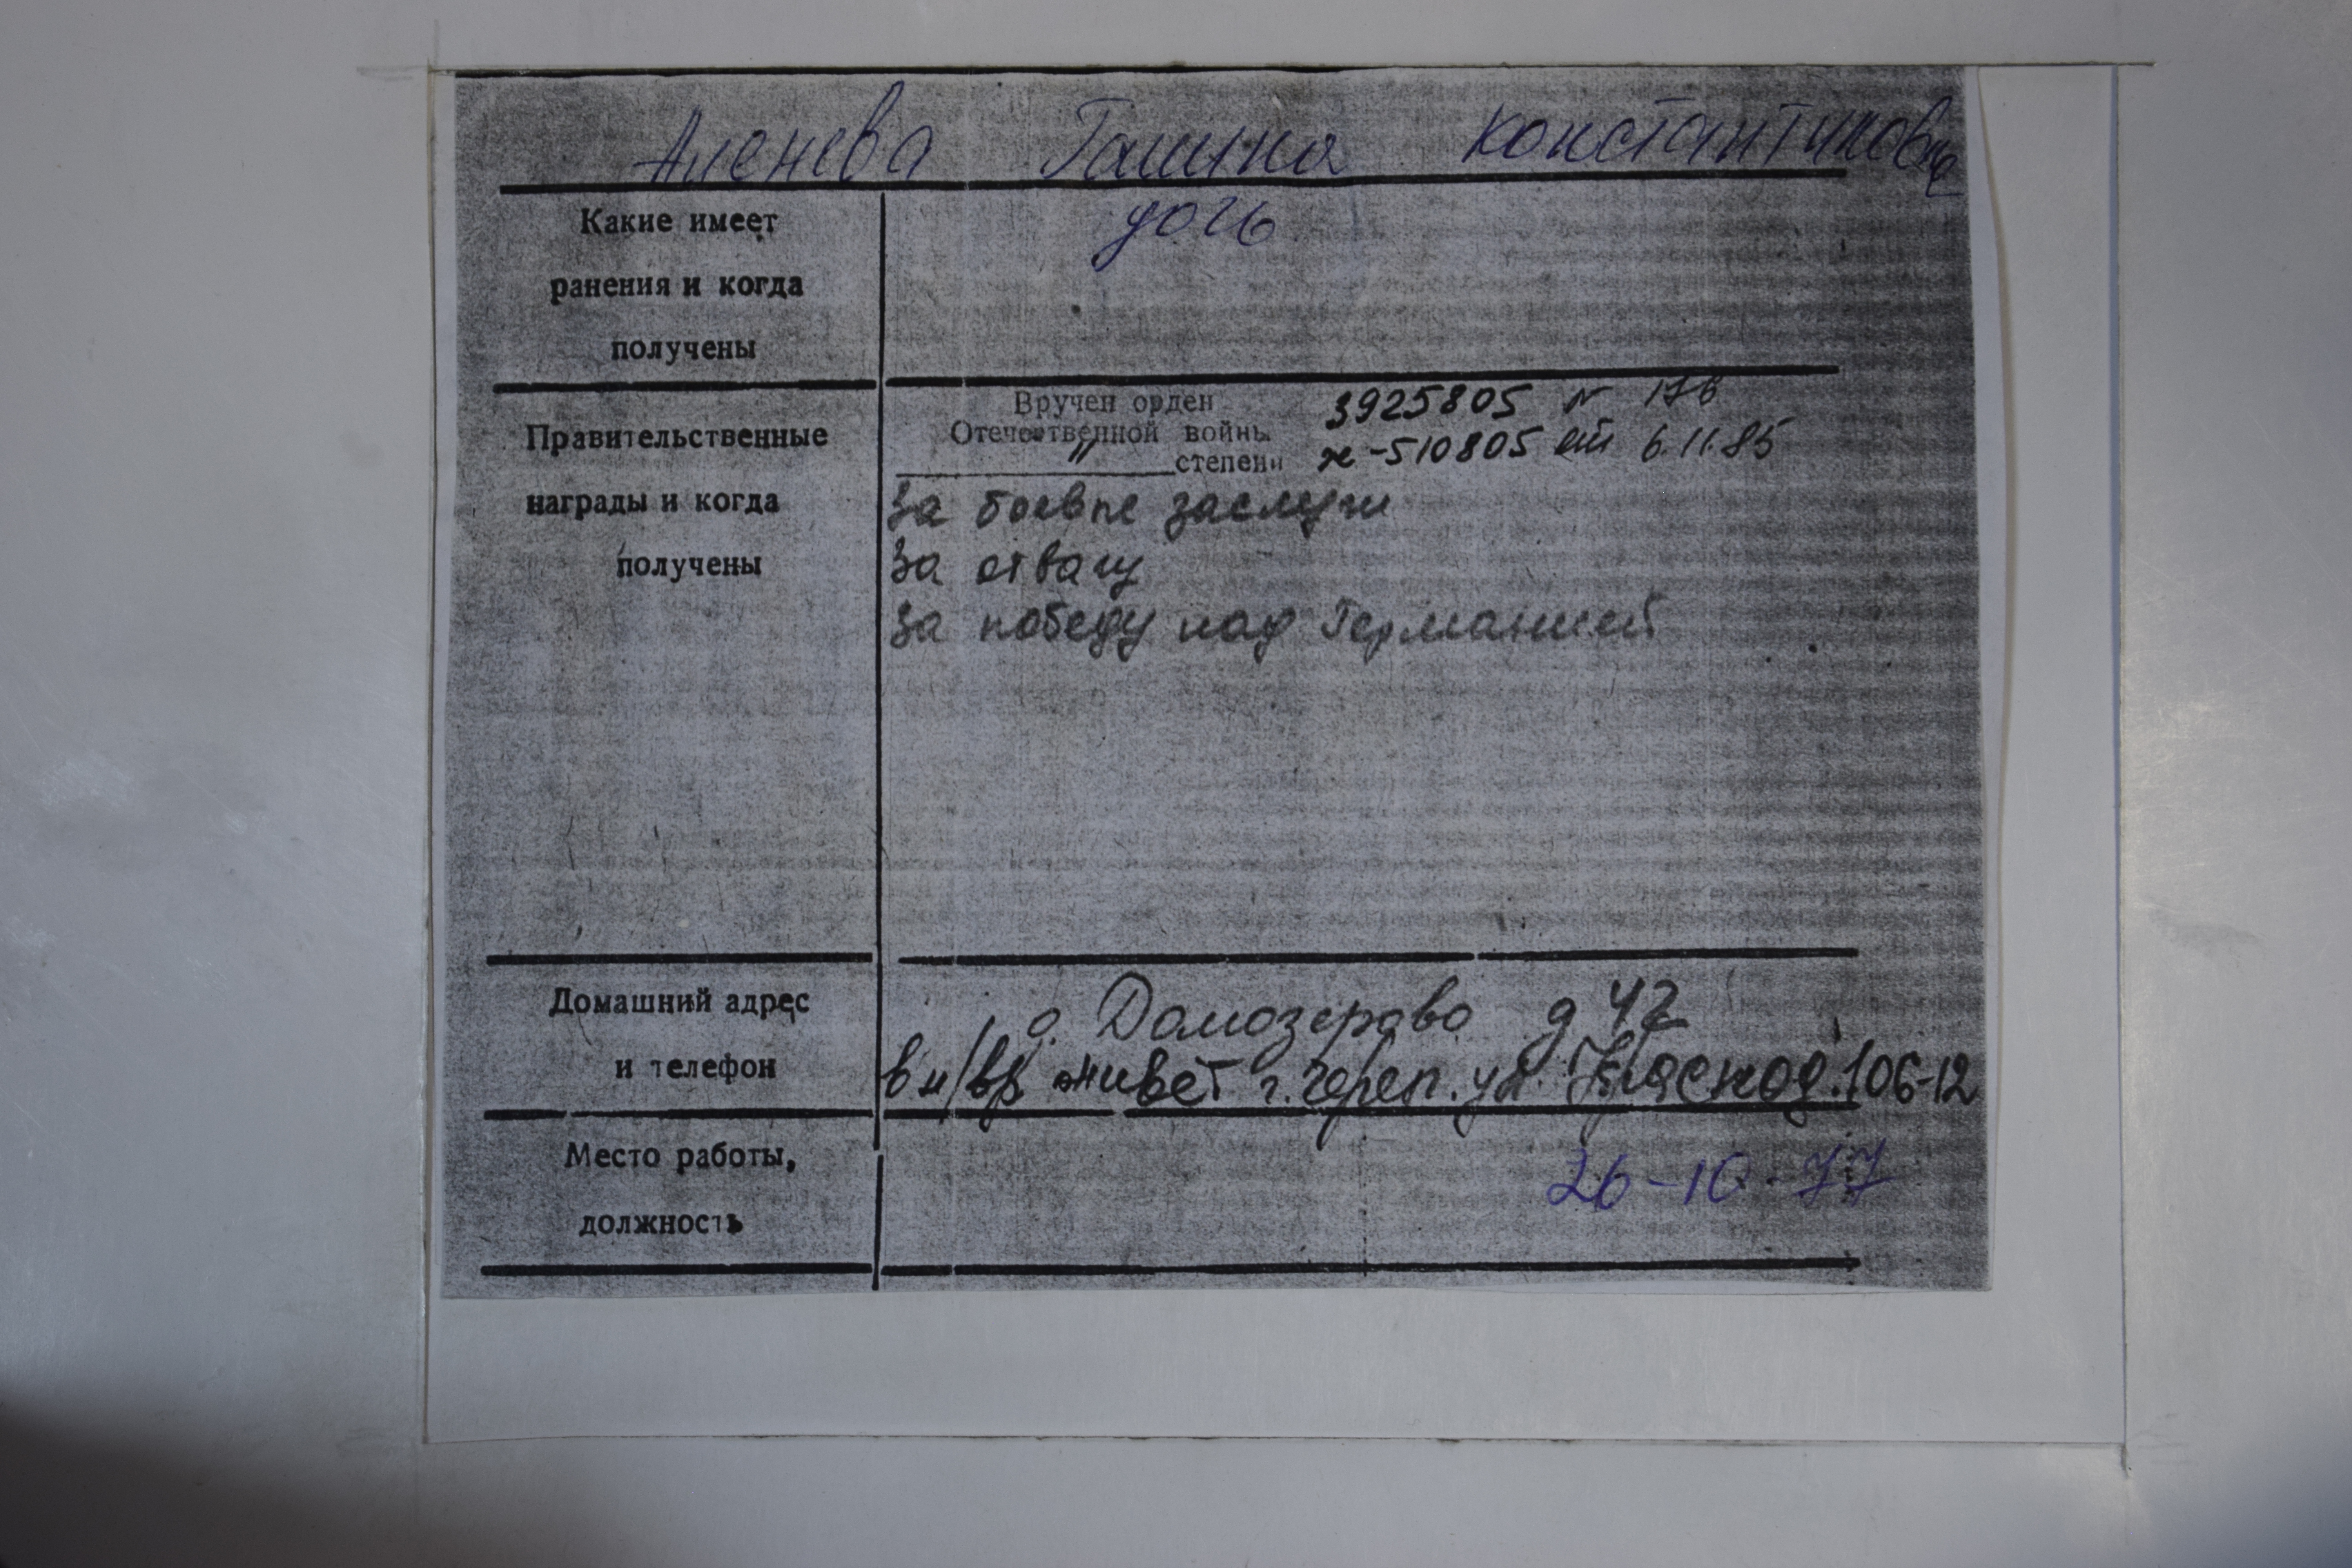 Аленева Галина Константиновна
дочь
Какие имеет
ранения и когда
получены
Вручен орден 3925805 N 176
Отечественной войны
" степени ж-510805 от 6.11.85
Правительственные
награды и когда
получены
За боевые заслуги
За отвагу
За победу над Германией
Домашний адрес
и телефон
д. Домозерово д 42
в н/вр. живет г. Череп. ул. Краснод. 106-12
Место работы,
должность
26-10-77